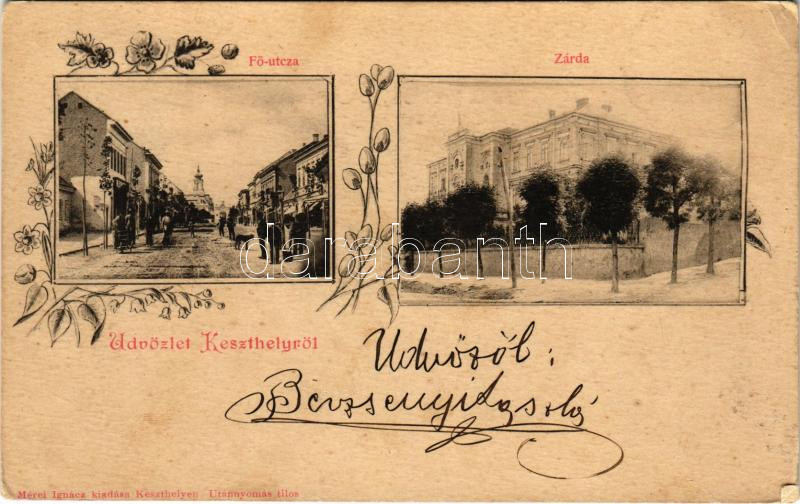 Fő-utcza
Zárda
darabanth
Üdvözlet Keszthelyről
Üdvözöl:
Mérei Ignácz kiadása Keszthelyen Utánnyomás tilos